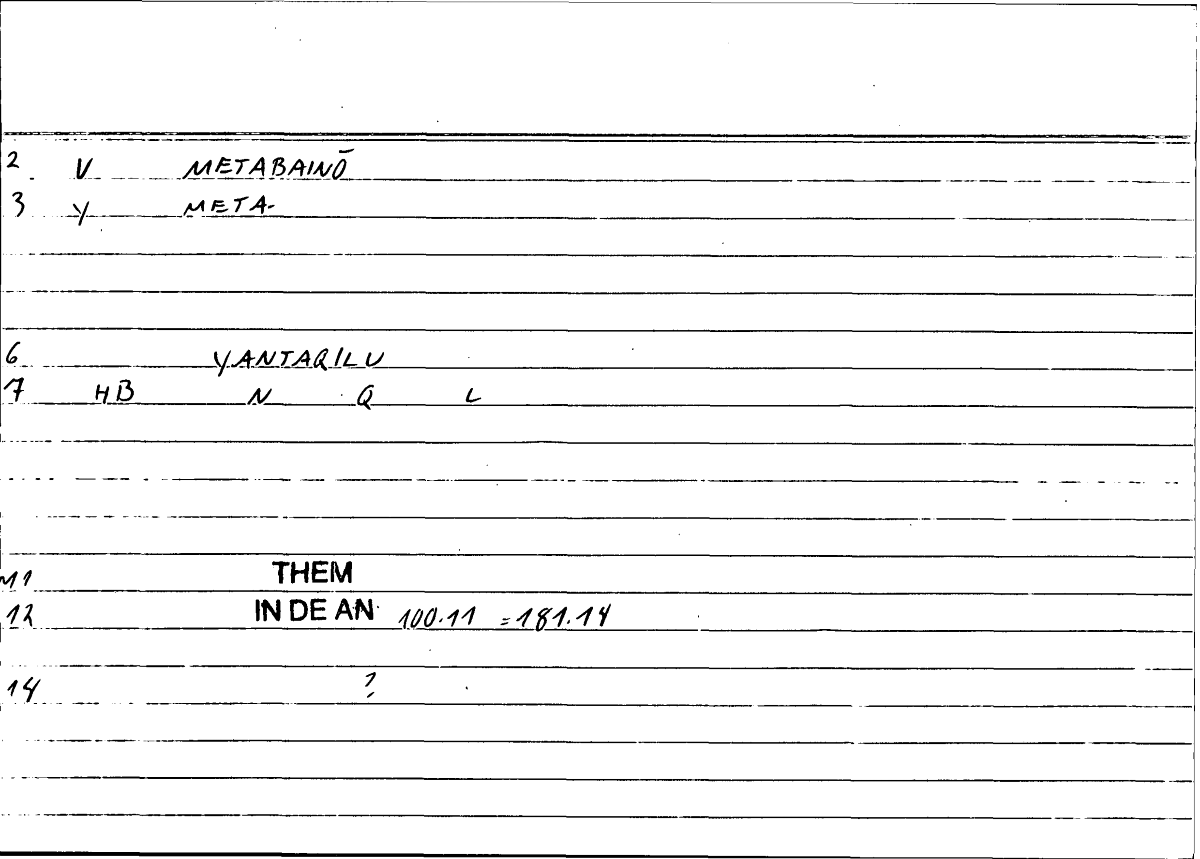 2 V METABAINŌ
3 Y META-
6 YANTAQILU
7 HB N Q L
11 THEM
12 IN DE AN 100.11 =181.14
14 ?